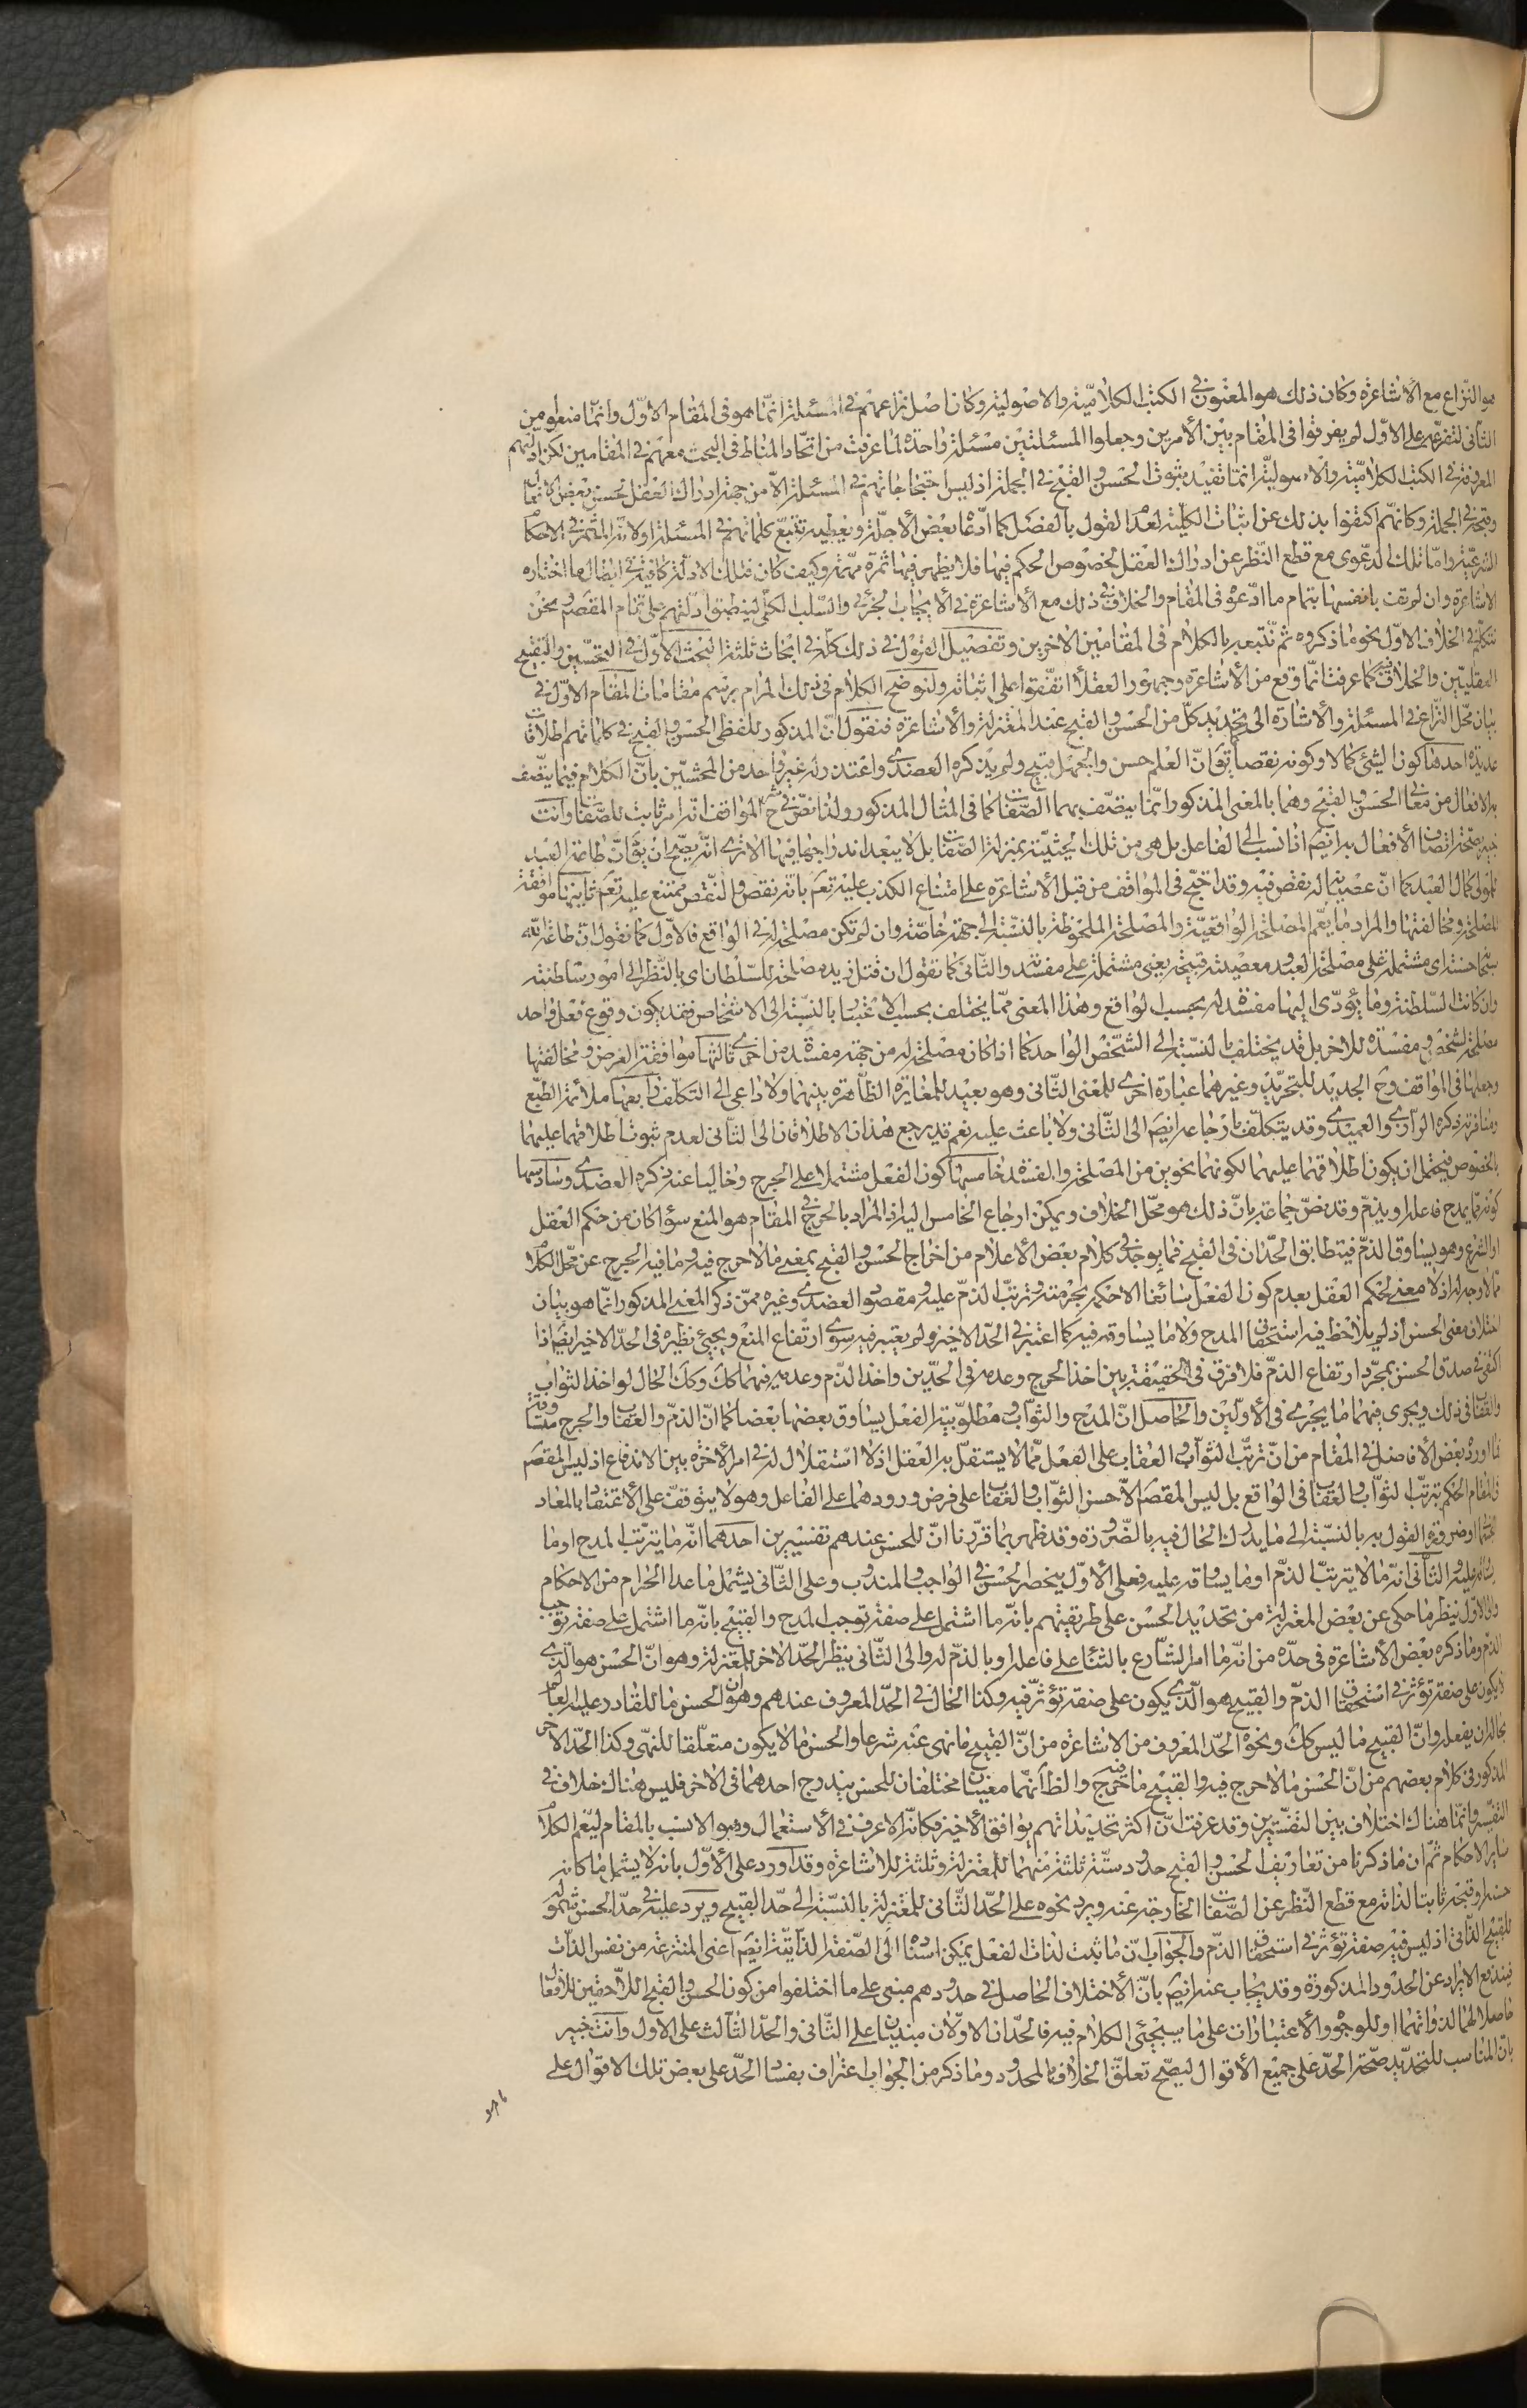 هو النّزاع مع الأشاعرة وكان ذلك هو المعنون في الكتب الكلاميّة والاصولية وكان اصل نزاعهم في المسئلة انّما هو في المقام الاوّل وانّما منعوا من
الثاني لتفرّعه على الاوّل لم يفرقوا في المقام بين الأمرين وجعلوا المسئلتين مسئلة واحدة لما عرفت من اتّحاد المناط في البحث معهم في المقامين لكن ادلّتهم
المعروفة في الكتب الكلاميّة والاصوليّة انّما تفيد ثبوت الحسن والقبح في الجملة اذ ليس احتجاجاتهم في المسئلة الّا من جهة ادراك العقل لحسن بعض الافعال
وقبحه في الجملة وكانّهم اكتفوا بذلك عن اثبات الكلّية لعدم القول بالفصل كما ادّعاه بعض الأجلّة ويعطيه تتبّع كلماتهم في المسئلة اولانّه المثمر في الاحكام
الشرعيّة وامّا تلك الدعوى مع قطع النّظر عن ادراك العقل لخصوص الحكم فيها فلا يظهر فيها ثمرة مهمّة وكيف كان فتلك الادلّة كافية في ابطال ما اختاره
الاشاعرة وان لم يف بانفسها بتمام ما ادّعوه في المقام والخلاف في ذلك مع الأشاعرة في الأيجاب الجزئي والسّلب الكلّي لينطبق ادلّتهم على تمام المقصود ونحن
نتكلّم في الخلاف الاوّل نحو ما ذكروه ثم نتبعه بالكلام في المقامين الاخرين وتفصيل القول في ذلك كلّه في ابحاث ثلثة البحث الاوّل في التحسين والتقبيح
العقليّين والخلاف فيه كما عرفت انّما وقع من الأشاعرة وجمهور العقلاء اتّفقوا على اثباته ولنوضح الكلام في ذلك المرام برسم مقامات المقام الاوّل في
بيان محّل النزاع في المسئلة والأشارة الى تحديد كلّ من الحسن والقبح عند المعتزلة والأشاعرة فنقول انّ المذكور للفظي الحسن والقبح في كلماتهم اطلاقات
عديدة احدها كون الشيئ كمالا وكونه نقصا يقال انّ العلم حسن والجهل قبيح ولم يذكره العضدي واعتذر له غير واحد من المحشيّن بانّ الكلام فيما يتّصف
به الافعال من معاني الحسن والقبح وهما بالمعنى المذكور انّما يتّصف بهما الصّفات كما في المثال المذكور ولذا نصّ في شرح المواقف انّه امر ثابت للصّفات وانت
خبير بصحّة اتّصاف الأفعال به ايضم اذا نسب الى الفاعل بل هي من تلك الحيثيّة بمنزلة الصّفات بل لا يبعد اندراجها فيها الا ترى انّه يصحّ ان يقال انّ طاعة العبد
للمولى كمال للعبد كما انّ عصيانه له نقص فيه وقد احتجّ في المواقف من قبل الأشاعرة على امتناع الكذب عليه تعم بانّه نقص والنّقص ممتنع عليه تعم ثانيها موافقة
المصلحة ومخالفتها والمراد ما يعّم المصلحة الواقعيّة والمصلحة الملحوظة بالنّسبة الى جهة خاصّة وان لم تكن مصلحة له في الواقع فالاوّل كما نقول انّ طاعة الله
سبحانه حسنة اي مشتملة على مصلحة العبد ومعصيته قبيحة يعني مشتملة على مفسدته والثّاني كما تقول ان قتل زيد مصلحة للسّلطان اي بالنّظر الى امور سلطنته
وان كانت السّلطنة وما يؤدّي اليها مفسدة له بحسب الواقع وهذا المعنى ممّا يختلف بحسب الاعتبار بالنّسبة الى الاشخاص فقد يكون وقوع فعل واحد
مصلحة لشخص ومفسدة للاخر بل قد يختلف بالنّسبة الى الشّخص الواحد كما اذا كان مصلحة له من جهة مفسدة من اخرى ثالثها موافقة الغرض ومخالفتها
وجعلها في المواقف وشرح الجديد للتجريد وغيرهما عبارة اخرى للمعنى الثّاني وهو بعيد للمغايرة الظّاهرة بينهما ولا داعي الى التكلّف رابعها ملائمة الطّبع
ومنافرته ذكره الرازي والعميدي وقد يتكلّف بارجاعه ايضم الى الثّاني ولا باعث عليه نعم قد يرجع هذان الاطلاقان الى الثاني لعدم ثبوت اطلاقهما عليهما
بالخصوص فيحتمل ان يكون اطلاقهما عليهما لكونهما نحوين من المصلحة والمفسدة خامسها كون الفعل مشتملا على الحرج وخاليا عنه ذكره العضدي وسادسها
كونه ممّا يمدح فاعله او يذمّ وقد نصّ جماعة بانّ ذلك هو محّل الخلاف ويمكن ارجاع الخامس اليه اذ المراد بالحرج في المقام هو المنع سواء كان من حكم العقل
او الشرع وهو يساوق الذمّ فيتطابق الحدّان في القبح فما يوجد في كلام بعض الأعلام من اخراج الحسن والقبح بمعنى ما لا حرج فيه وما فيه الحرج عن محّل الكلام
ممّا لا وجه له اذ لا معنى لحكم العقل بعدم كون الفعل سائغا الا حكمه بحرمته وترتّب الذمّ عليه ومقصود العضدي وغيره ممّن ذكر المعنى المذكور انّما هو بيان
اختلاف معنى الحسن اذ لم يلاحظ فيه استحقاق المدح ولا ما يساوقه فيه كما اعتبر في الحدّ الاخير ولم يعتبر فيه سوى ارتفاع المنع ويجيئ نظيره في الحدّ الاخير ايضم اذا
اكتفي في صدق الحسن بمجرّد ارتفاع الذمّ فلا فرق في الحقيقة بين اخذ الحرج وعدمه في الحدّين واخذ الذّم وعدمه فيهما كك وكك الحال لو اخذ الثواب
والعقاب في ذلك ويجرى فيهما ما يجري في الأولين والحاصل انّ المدح والثواب ومطلوبيّة الفعل يساوق بعضها بعضا كما انّ الذمّ والعقاب والحرج متساوقة
فما اورده بعض الأفاضل في المقام من انّ ترتّب الثواب والعقاب على الفعل ممّا لا يستقلّ به العقل اذ لا استقلال له في امر الأخرة بين الاندفاع اذ ليس المقصم
في المقام الحكم بترتّب الثواب والعقاب في الواقع بل ليس المقصم الّا حسن الثواب والعقاب على فرض ورودهما على الفاعل وهو لا يتوقّف على الأعتقاد بالمعاد
الجسماني او ضرورة القول به بالنّسبة الى ما يدرك الحال فيه بالضّرورة وقد ظهر بما قرّرنا انّ للحسن عندهم تفسيرين احدهما انّه ما يترتّب المدح او ما
يساوقه عليه الثّاني انّه ما لا يترتّب الذمّ او ما يساوقه عليه فعلى الأوّل ينحصر الحسن في الواجب والمندوب وعلى الثّاني يشمل ما عدا الحرام من الاحكام
والى الاوّل ينظر ما حكي عن بعض المعتزلة من تحديد الحسن على طريقتهم بانّه ما اشتمل على صفة توجب المدح والقبيح بانّه ما اشتمل على صفة توجب
الذمّ وما ذكره بعض الأشاعرة في حدّه من انّه ما امر الشّارع بالثّناء على فاعله او بالذمّ له والى الثّاني ينظر الحدّ الاخر للمعتزلة وهو انّ الحسن هو الّذي
لا يكون على صفة تؤثر في استحقاق الذمّ والقبيح هو الّذي يكون على صفة تؤثّر فيه وكذا الحال في الحدّ المعروف عندهم وهو انّ الحسن ما للقادر عليه العالم
بحاله ان يفعله وانّ القبيح ما ليس كك ونحوه الحدّ المعروف من الاشاعرة من انّ القبيح ما نهى عنه شرعا والحسن ما لا يكون متعلّقا للنهي وكذا الحدّ الاخر
المذكور في كلام بعضهم من انّ الحسن ما لا حرج فيه والقبيح ما فيه حرج والظاّ انّهما معنيان مختلفان للحسن يندرج احدهما في الاخر فليس هناك خلاف في
التفسير وانّما هناك اختلاف بين التفسيرين وقد عرفت انّ اكثر تحديداتهم يوافق الأخير فكانّه الاعرف في الأستعمال وهو الانسب بالمقام ليعّم الكلام
ساير الاحكام ثمّ ان ما ذكرنا من تعاريف الحسن والقبح حدود ستّة ثلثة منها للمعتزلة وثلثة للاشاعرة وقد اورد على الأوّل بانّه لا يشمل ما كانه
حسنه وقبحه ثابتا لذاته مع قطع النّظر عن الصّفات الخارجة عنه ويرد نحوه على الحدّ الثّاني للمعتزلة بالنّسبة الى حدّ القبيح ويرد عليه في حدّ الحسن شموله
للقبيح الذّاتي اذ ليس فيه صفة تؤثر في استحقاق الذمّ والجواب انّ ما ثبت لذات الفعل يمكن اسناده الى الصّفة الذّاتيّة ايضم اعني المنتزعة من نفس الذّات
فيندفع الايراد عن الحدود المذكورة وقد يجاب عنه ايضم بانّ الأختلاف الحاصل في حدودهم مبنيّ على ما اختلفوا من كون الحسن والقبح اللّاحقين للافعال
حاصلا لهما لذواتهما او للوجوه والأعتبارات على ما سيجيئ الكلام فيه فالحدّان الاوّلان مبنيان على الثّاني والحدّ الثّالث على الاول وانت خبير
بانّ المناسب للتحديد صحّة الحدّ على جميع الأقوال ليصّح تعلّق الخلاف بالمحدود وما ذكر من الجواب اعتراف بفساد الحدّ على بعض تلك الاقوال على